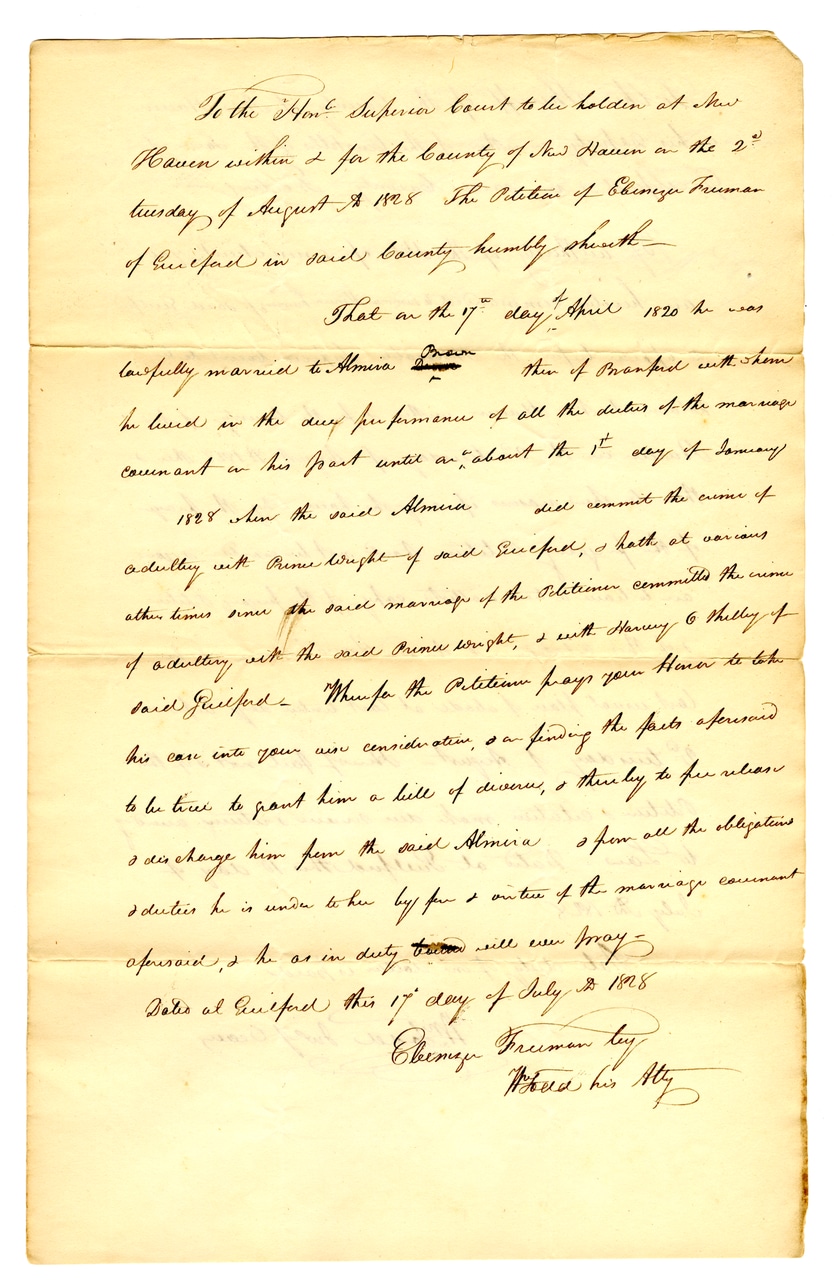 To the Hon.e Superior Court to be holden at New
Haven within & for the County of New Haven on the 2d
tuesday of August AD 1828 The Petition of Ebenezer Freeman
of Guilford in said County humbly sheweth—
That on the 17th day of April 1820 he was
lawfully married to Almira Brown then of Branford with whom
he lived in the due performance of all the duties of the marriage
covenant on his part until on or about the 1st day of January
1828 when the said Almira did commit the crime of
adultery with Prince Wright of said Guilford, & hath at various
other times since the said marriage of the Petitioner committed the crime
of adultery with the said Prince Wright, & with Harvey G Shelley of
said Guilford— Wherefor the Petitioner prays your Honor to take
his case into your wise consideration, & on finding the facts aforesaid
to be true to grant him a bill of divorce, & thereby to free release
& discharge him from the said Almira & from all the obligations
& duties he is under to her by for & virtue of the marriage covenant
aforesaid, & he as in duty bound will ever pray—
Dated at Guilford this 17th day of July AD 1828
Ebenezer Freeman by
Wm Todd his Atty